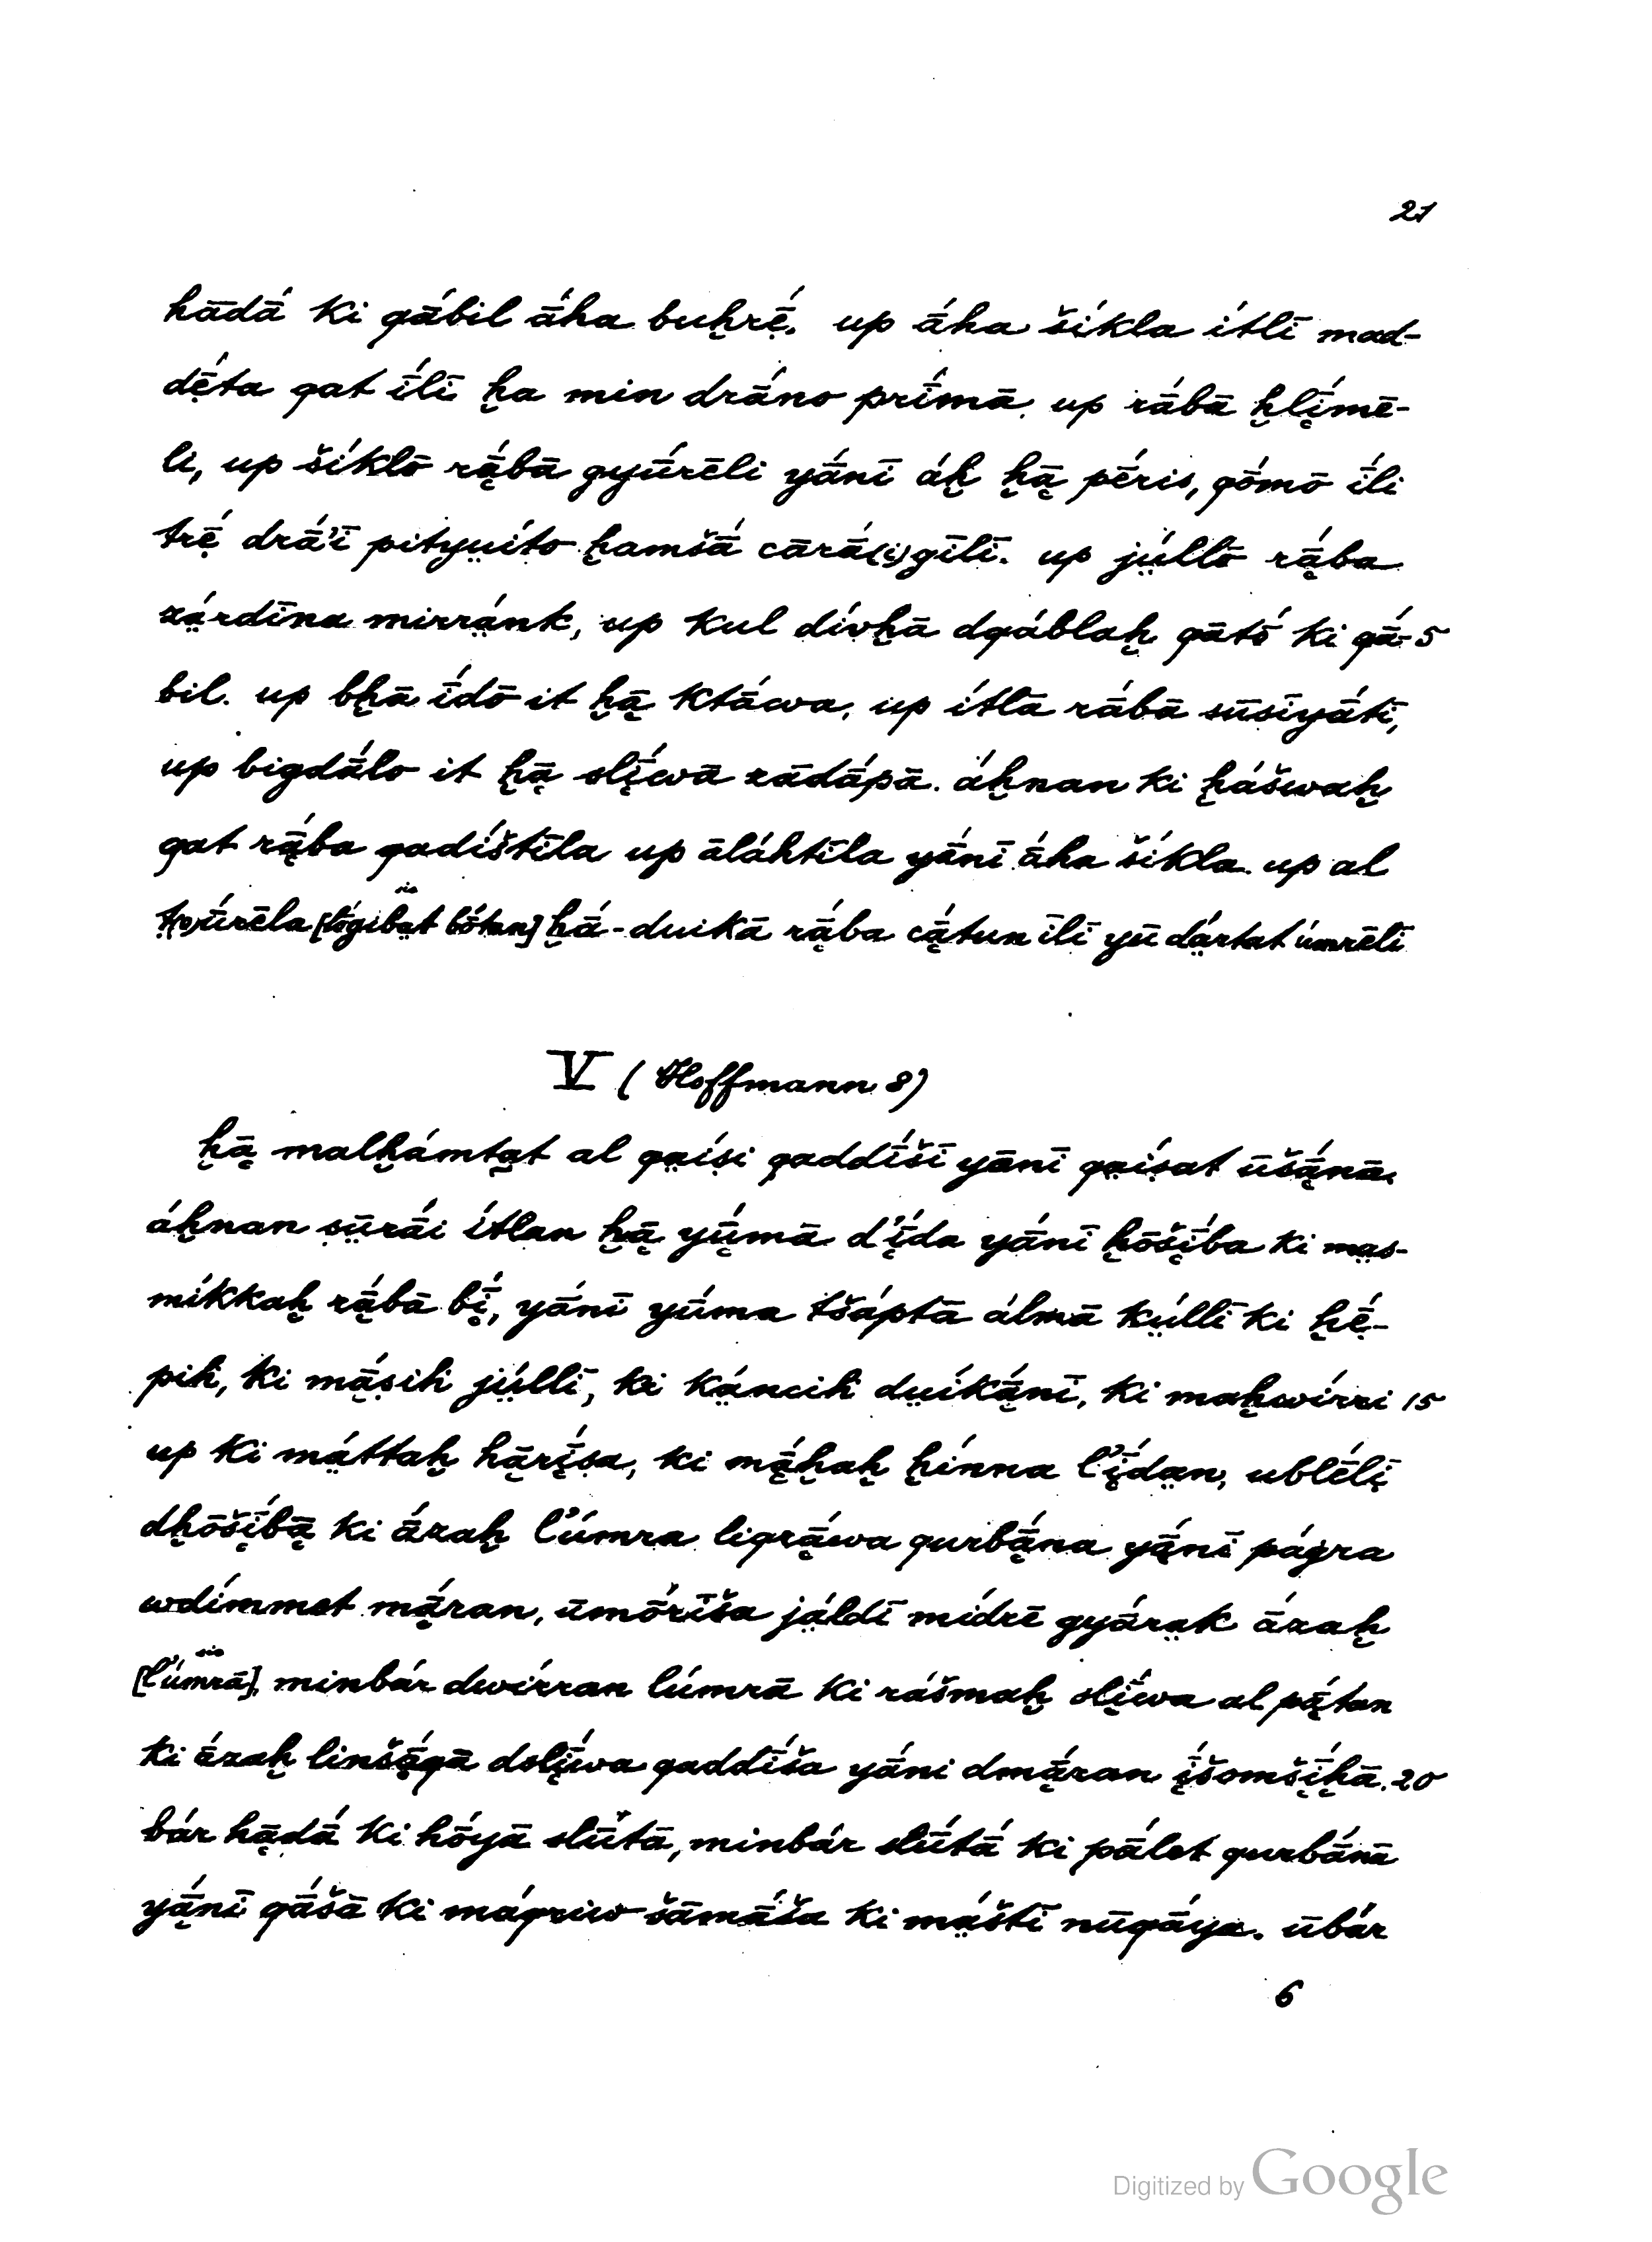 21
hādā́ ki qā́bil ā́ha buḫrḗ. up ā́ha šíkla ítlī mad-
dḗta qat ī́lī ḫa min drā́no prī́mā. up rā́bā ḫlį̄́mē-
li, up šíklō rą̄́bā gyū́rēli yā́nī áḫ ḫą̄ pḗris, qṓmō ī́li
trḗ drā́'ī pityuíto ḫamšā́ cārā́(i)gīlī. up jṳ́llō rą̄́ba
zá̤rdīna mirrá̤nk, up kul dívḫā dqáblaḫ qātṓ ki qā́- 5
bil. up bḫā ī́dō it ḫą̄ ktā́wa, up ítlā rā́bā sūsīyā́tī,
up bigdā́lo it ḫą̄ slį̄́wā zādā́pā. áḫnan ki ḫášwaḫ
qat rą̄́ba qadíštīla up ālā́htīla yā́nī ā́ha šíkla. up al
ṭ(w)ū́rēla [tṓgiba̤t bṓtan] ḫā́-duikā rą̄́ba cą̄́tun īlī yū dá̤rtat úmrēlī
sic
V (Hoffmann 8)
ḫą̄ malḫámta̤t al qa̤íṣi qaddī́šī yānī qa̤íṣat ūšą̄́nā.
áḫnan sṳ̄rā́i ítlan ḫą̄ yṳ̄́mā d'į̄́da yā́nī ḫōšį̄́ba ki ma̤s-
míkkaḫ rą̄́bā bį̄́, yā́nī yū́ma tšáptā álmā kṳ́llī ki ḫḗ-
pih, ki mą̄́ṣih jṳ́llī, ki ká̤ncih dṳíką̄́nī, ki maḫwírri 15
up ki má̤ttaḫ hą̄rį̄́sa, ki mą̄́ḫaḫ ḫínna l'į̄́da̤n, ublḗlį̄
dḫōšį̄́bą̄ ki ā́zaḫ l'úmra liqrą̄́wa qurbą̄́na yą̄́nī págra
wdímmet mą̄́ran, ūmṓrī̄ša já̤ldī mídrē gyā́ra̤k ā́zaḫ
sic
[l'úmrā], minbár dwírran lúmrā ki rášmaḫ slį̄́wa al pą̄́tan
ki ā́zaḫ linšą̄́qā dslį̄́wa qaddī́ša yā́ni dmą̄́ran į̄šomšį̄́ḫā. 20
bár hą̄dā́ ki hṓyā slū́tā, minbár slū́tā́ ki pā́let qurbā́nā
yą̄́nī qā́šā ki máqriw šāmā́ša ki má̤štī nūqā́ya. ūbár
6
Digitized by Google